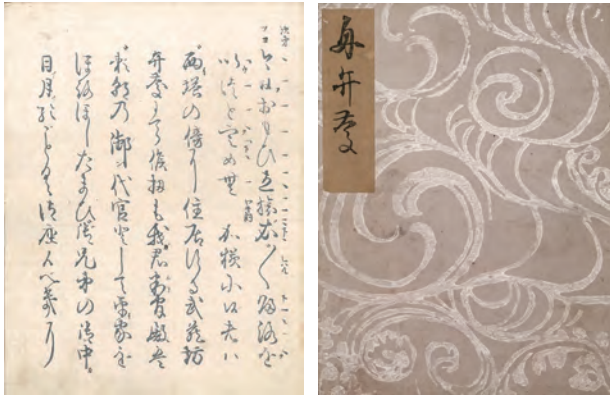 舟弁慶
今日おもひ立旅衣〱帰洛を
いつと定め無 か様に候者ハ
西塔の傍に住居する武蔵坊
弁慶にて候扨も我君判官殿は
頼朝乃御代官として平家を
ほろほしたまひ御兄弟の御中
日月のごとく御座